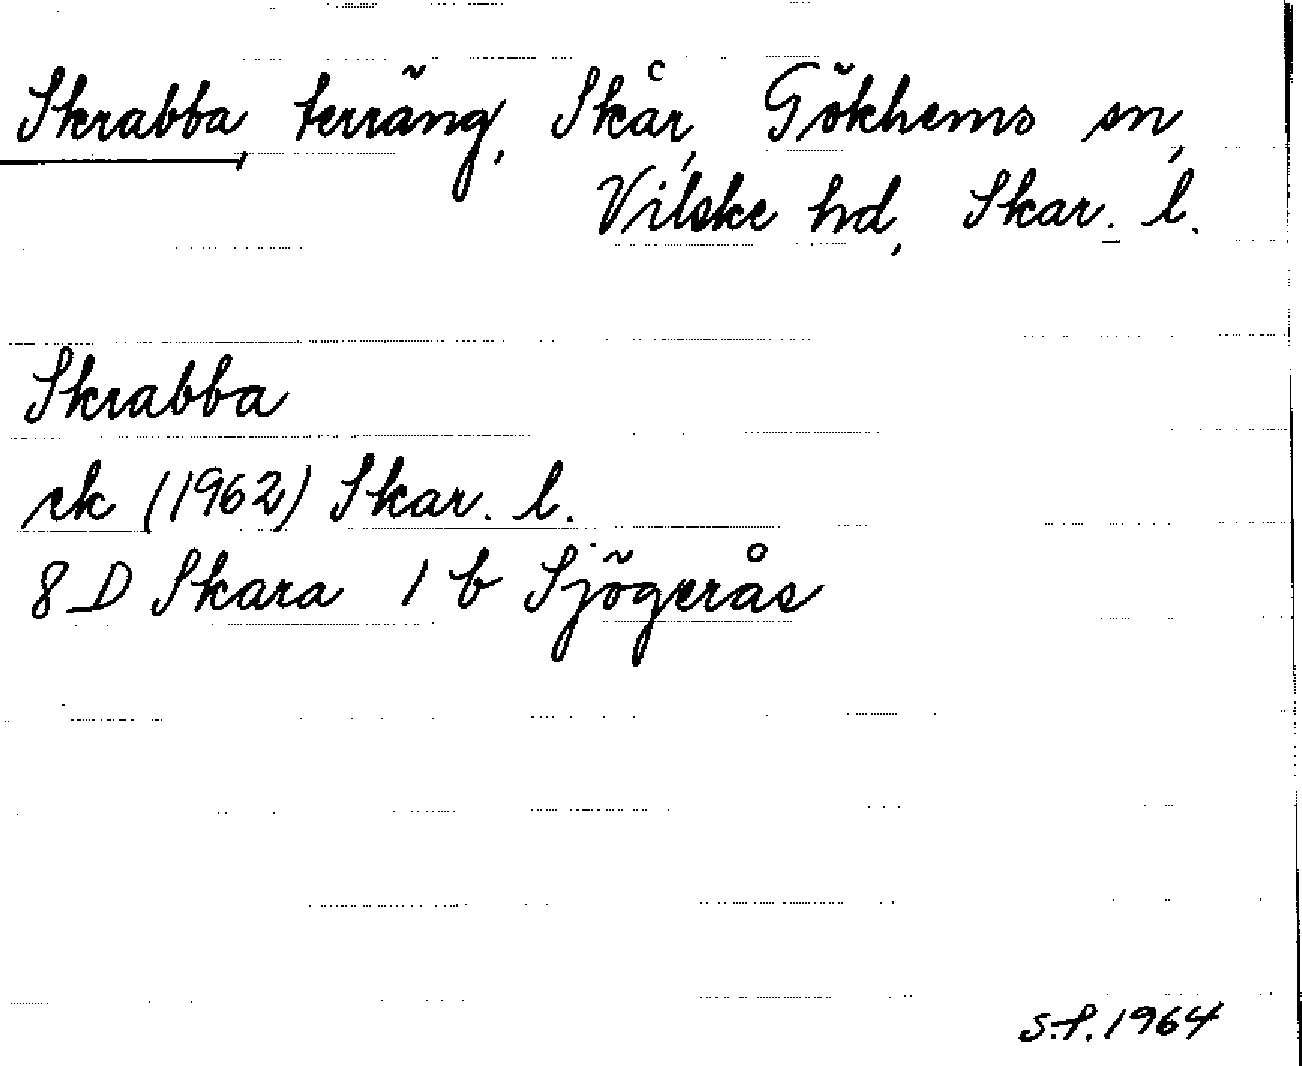 Skrabba, terräng, Skår, Gökhems sn,
Vilske hd, Skar. l.
Skrabba
rk (1962) Skar. l.
8 D Skara 1 b Sjögerås
S.F. 1964